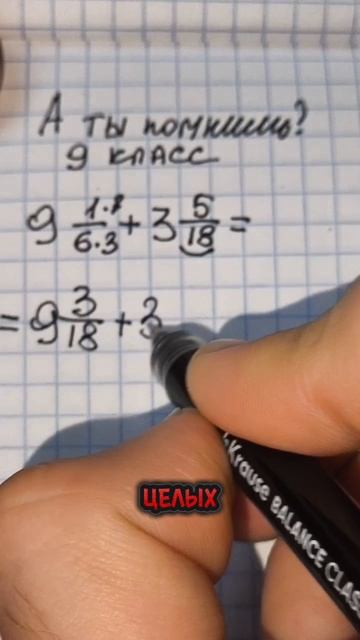 А ты помнишь?
9 класс
9 1·3/6·3 + 3 5/18 =
= 9 3/18 + 3
целых
Krause BALANCE CLAS